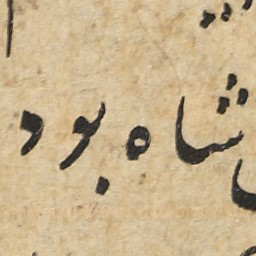 شاه بود